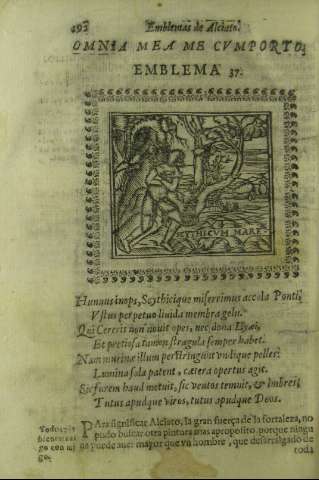 Emblemas de Alciato.
OMNIA MEA ME CVM PORTO,
EMBLEMA 37.
SCYTHICVM MARE
Hunnus inops, Scythicique miserrimus accola Ponti,
Vstus perpetuo liuida membra gelu.
Qui Cereris non nouit opes, nec dona Lyæi,
Et pretiosa tamen stragula semper habet.
Nam murinæ illum perstringunt vndique pelles:
Lumina sola patent, cætera opertus agit.
Sic furem haud metuit, sic ventos temnit, & imbres;
Tutus apudque viros, tutus apudque Deos.
PAra significar Alciato, la gran fuerça de la fortaleza, no
pudo buscar otra pintura mas aproposito, porque ningu
na puede auer mayor que vn hombre, que desarraigado de
toda